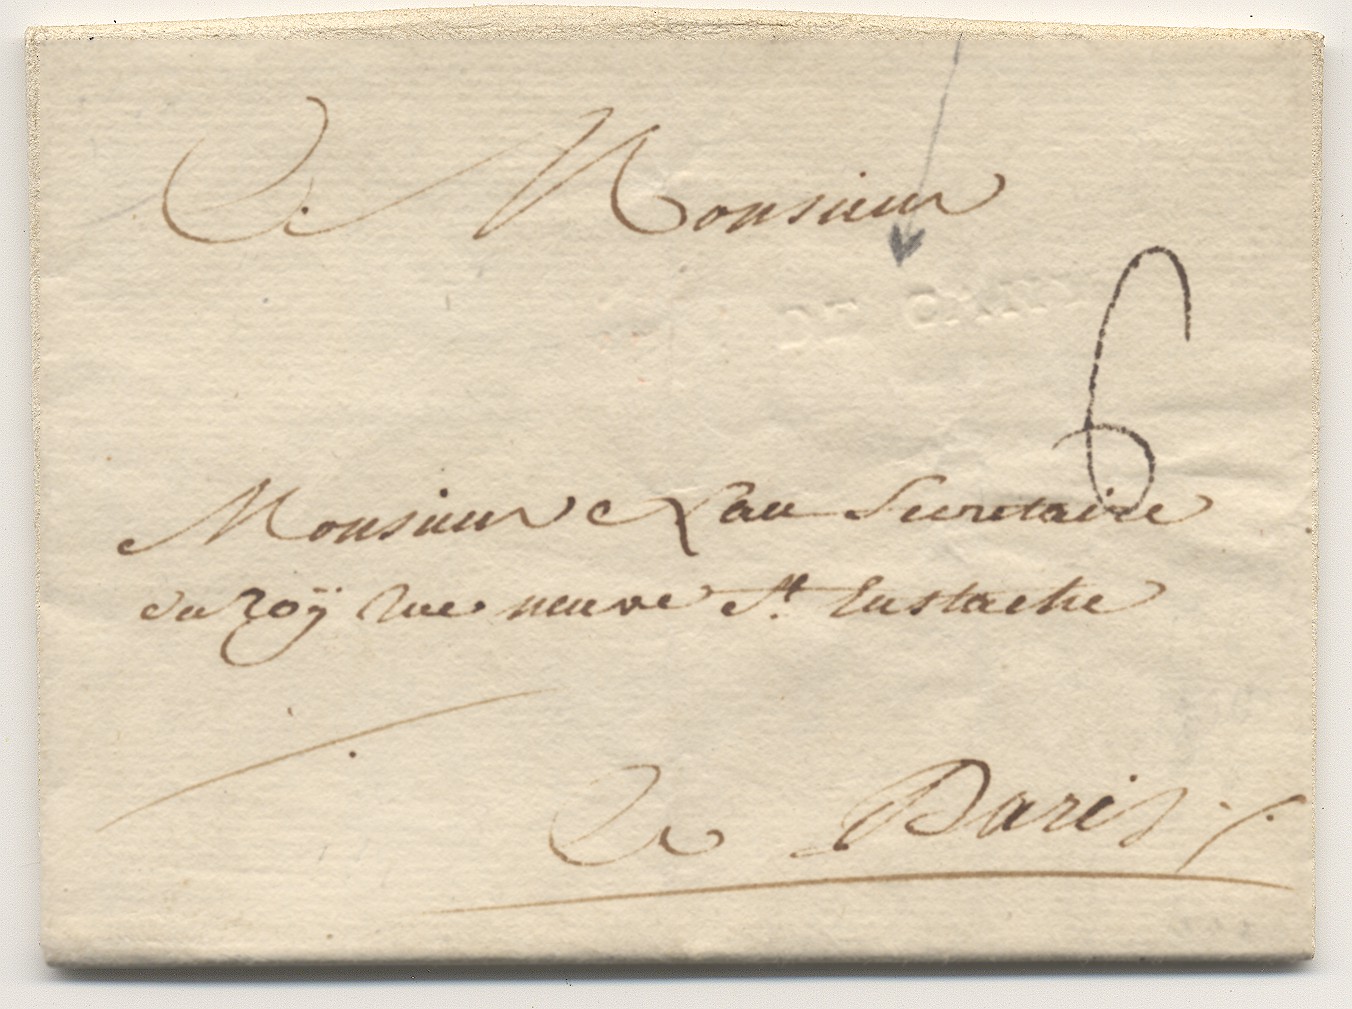 A Monsieur
DE
6
Monsieur Secretaire
du roÿ rue neuve St Eustache
A Paris